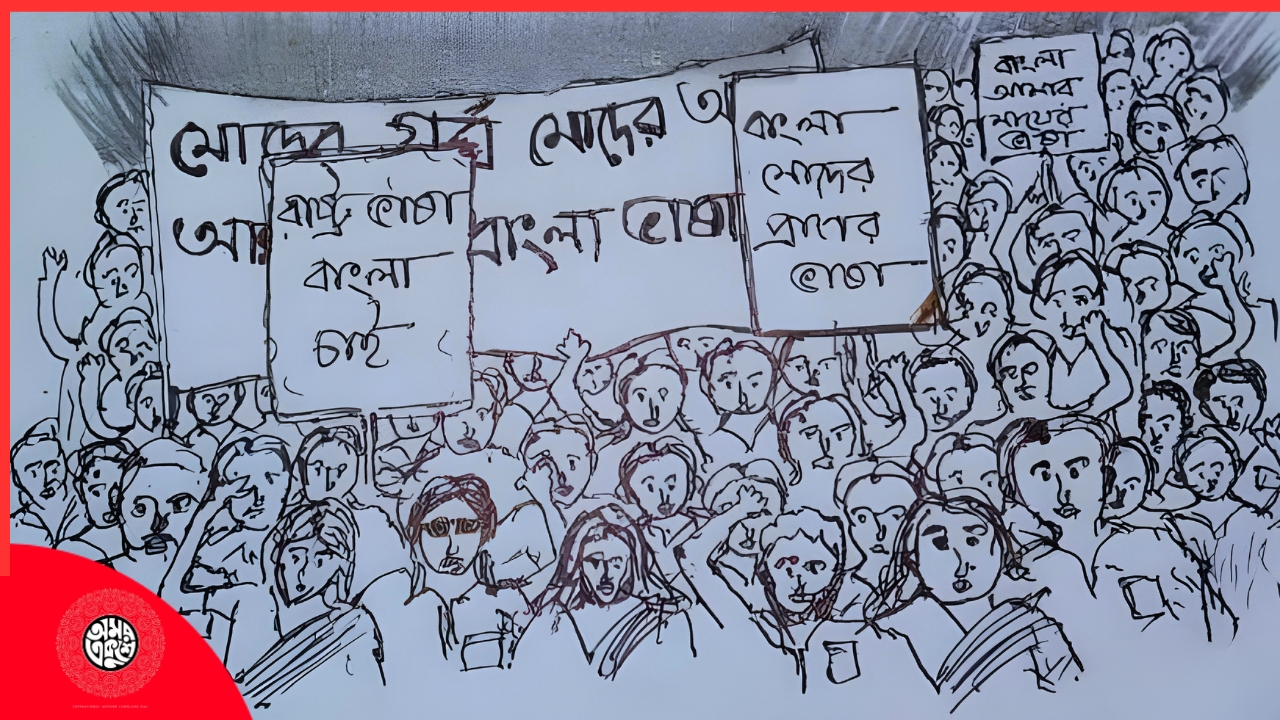 মোদের গর্ব মোদের
বাংলা ভাষা
রাষ্ট্র ভাষা
বাংলা
চাই
বাংলা
মোদের
প্রাণের
ভাষা
বাংলা
আমার
মায়ের
ভাষা
অমর
একুশে